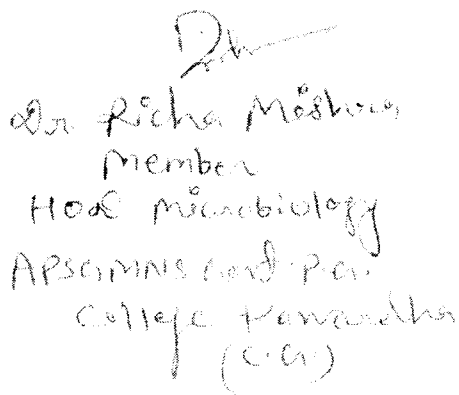 Dr Richa Mishra
Member
HOD Microbiology
APSGMNS Govt. P.G.
College Kawardha
(C.G.)